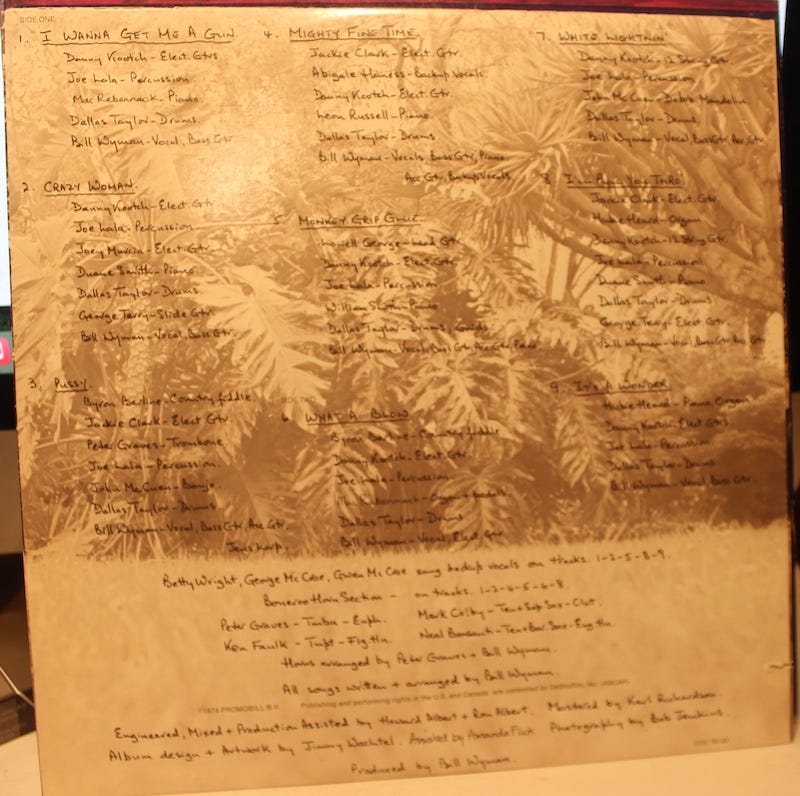 SIDE ONE
1. I WANNA GET ME A GUN
Danny Kootch - Elect Gtrs
Joe Lala - Percussion
Mac Rebennack - Piano
Dallas Taylor - Drums
Bill Wyman - Vocal, Bass Gtr
2. CRAZY WOMAN
Danny Kootch - Elect Gtr
Joe Lala - Percussion
Joey Murcia - Elect Gtr
Duane Smith - Piano
Dallas Taylor - Drums
George Terry - Slide Gtr
Bill Wyman - Vocal, Bass Gtr
3. PUSSY
Byron Berline - Country fiddle
Jackie Clark - Elect Gtr
Peter Graves - Trombone
Joe Lala - Percussion
John McEuen - Banjo
Dallas Taylor - Drums
Bill Wyman - Vocal, Bass Gtr, Acc Gtr,
Jews harp
4. MIGHTY FINE TIME
Jackie Clark - Elect. Gtr
Abigale Haness - Backup Vocals
Danny Kootch - Elect. Gtr
Leon Russell - Piano
Dallas Taylor - Drums
Bill Wyman - Vocals, Bass Gtr, Piano
Acc Gtr, Backup Vocals
5. MONKEY GRIP GLUE
Lowell George - Lead Gtr
Danny Kootch - Elect. Gtr
Joe Lala - Percussion
William Smith - Piano
Dallas Taylor - Drums,
Bill Wyman - Vocal, Bass Gtr, Acc Gtr, Piano
SIDE TWO
6. WHAT A BLOW
Byron Berline - Country fiddle
Danny Kootch - Elect. Gtr
Joe Lala - Percussion
Mac Rebennack - Organ +
Dallas Taylor - Drums
Bill Wyman - Vocal, Elect. Gtr
7. WHITE LIGHTNIN'
Danny Kootch - 12 String Gtr
Joe Lala - Percussion
John McEuen - Dobro, Mandolin
Dallas Taylor - Drums
Bill Wyman - Vocal, Bass Gtr, Acc Gtr
8. I'LL PULL YOU THRO'
Jackie Clark - Elect Gtr
Hubie Heard - Organ
Danny Kootch - 12 String Gtr
Joe Lala - Percussion
Duane Smith - Piano
Dallas Taylor - Drums
George Terry - Elect Gtr
Bill Wyman - Vocal, Bass Gtr, Acc Gtr
9. IT'S A WONDER
Hubie Heard - Piano, Organ
Danny Kootch - Elect Gtrs
Joe Lala - Percussion
Dallas Taylor - Drums
Bill Wyman - Vocal, Bass Gtr
Betty Wright, George McCrae, Gwen McCrae sang backup vocals on tracks. 1-2-5-8-9.
Bonaroo Horn Section - on tracks. 1-2-4-5-6-8.
Peter Graves - Tmbn - Euph. Mark Colby - Ten + Sop Sax - Clnt.
Ken Faulk - Tmpt - Flg Hn. Neal Bonsanti - Ten + Bar Sax - Eng Hn.
Horns arranged by Peter Graves + Bill Wyman.
All songs written + arranged by Bill Wyman.
℗1974 PROMOBILL B.V. Publishing and performing rights in the U.S. and Canada are controlled by (ASCAP)
Engineered, Mixed + Production Assisted by Howard Albert + Ron Albert. Mastered by Karl Richardson.
Album design + Artwork by Jimmy Wachtel. Assisted by Amanda Flick Photography by Bob Jenkins.
Produced by Bill Wyman.